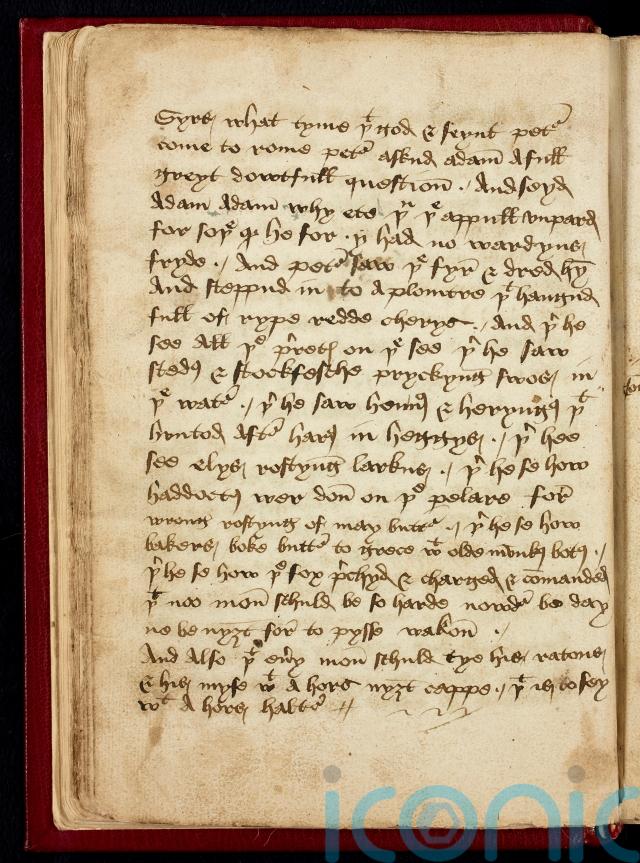 Syrs what tyme þt god & seynt petr
come to rome petr askud adam a full
greyt dowtfull question . And seyd
Adam Adam why ete þu þe appull vnpard
for soþe qd he for y had no wardyns
fryde . And petr saw þe fyr & dred hȳ
And steppud in to a plomtre þt hangud
full of rype redde cherys . And þr he
see all þe on þe see þr he saw
stedꝭ & stockfesche pryckyng swos in
þe watr . þr he saw hennꝭ & heryngꝭ þt
huntod aftr hartꝭ in heggys . þr hee
see elys rostyng larkus . þr he se how
haddoctꝭ wer don̄ on þe pelare for
wrong rostyng of may buttr . þr he se how
bakers boke buttr to grece wt olde munkꝭ botꝭ .
þr he se how þe fox prchyd & charged & cōmanded
þt noo mon̄ schuld be so harde nowdr be day
ne be nyȝt for to pysse wakon̄ .
And also þt eūy mon̄ schuld tye his ratons
& his myse wt a hors nyȝt cappe . þt is to sey
wt a hors haltr
iconic